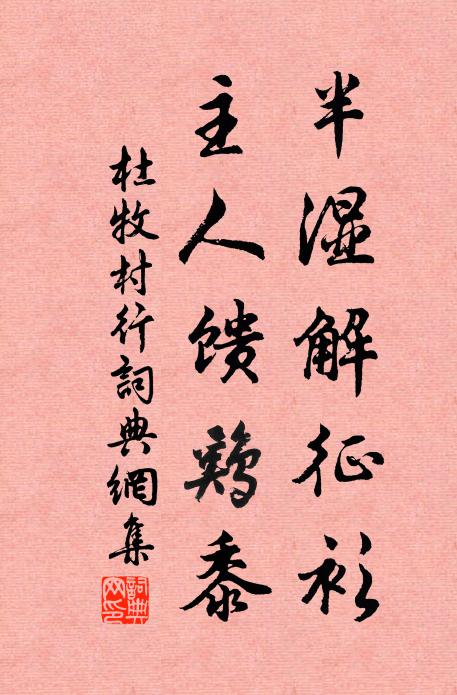 半湿解征衫
主人馈鷄黍
杜牧村行詞典網集
詞典网印